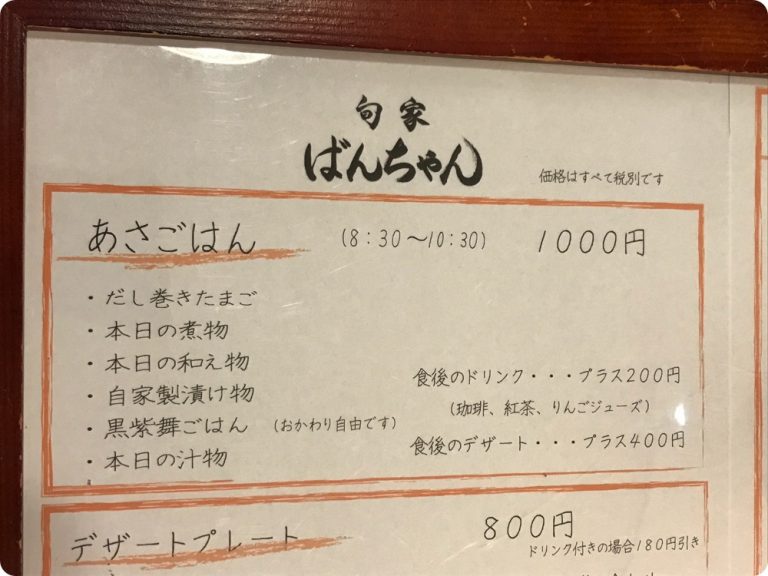 旬家
ばんちゃん
価格はすべて税別です
あさごはん (8:30〜10:30) 1000円
・だし巻きたまご
・本日の煮物
・本日の和え物
・自家製漬け物
・黒紫舞ごはん (おかわり自由です)
・本日の汁物
食後のドリンク・・・プラス200円
(珈琲、紅茶、りんごジューズ)
食後のデザート・・・プラス400円
デザートプレート 800円
ドリンク付きの場合180円引き